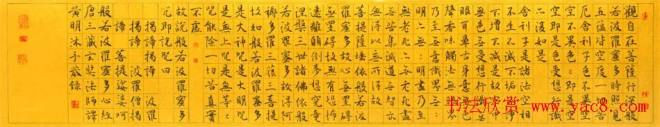 觀自在菩薩行深般
若波羅蜜多時照見
五蘊皆空度一切苦
厄舍利子色不異空
空不異色色即是空
空即是色受想行識
亦復如是
舍利子是諸法空相
不生不滅不垢不淨
不增不減是故空中
無色無受想行識無
眼耳鼻舌身意無色
聲香味觸法無眼界
乃至無意識界無無
明亦無無明盡乃至
無老死亦無老死盡
無苦集滅道無智亦
無得以無所得故
菩提薩埵依般若波
羅蜜多故心無罣礙
無罣礙故無有恐怖
遠離顛倒夢想究竟
涅槃三世諸佛依般
若波羅蜜多故得阿
耨多羅三藐三菩提
故知般若波羅蜜多
是大神咒是大明咒
是無上咒是無等等
咒能除一切苦真實
不虛
故說般若波羅蜜多
咒即說咒曰
揭諦 揭諦 波羅
揭諦 波羅僧揭
諦 菩提娑婆訶
般若波羅蜜多心經
唐三藏玄奘法師譯
黃明沐手敬錄
书法欣赏
www.yac8.com